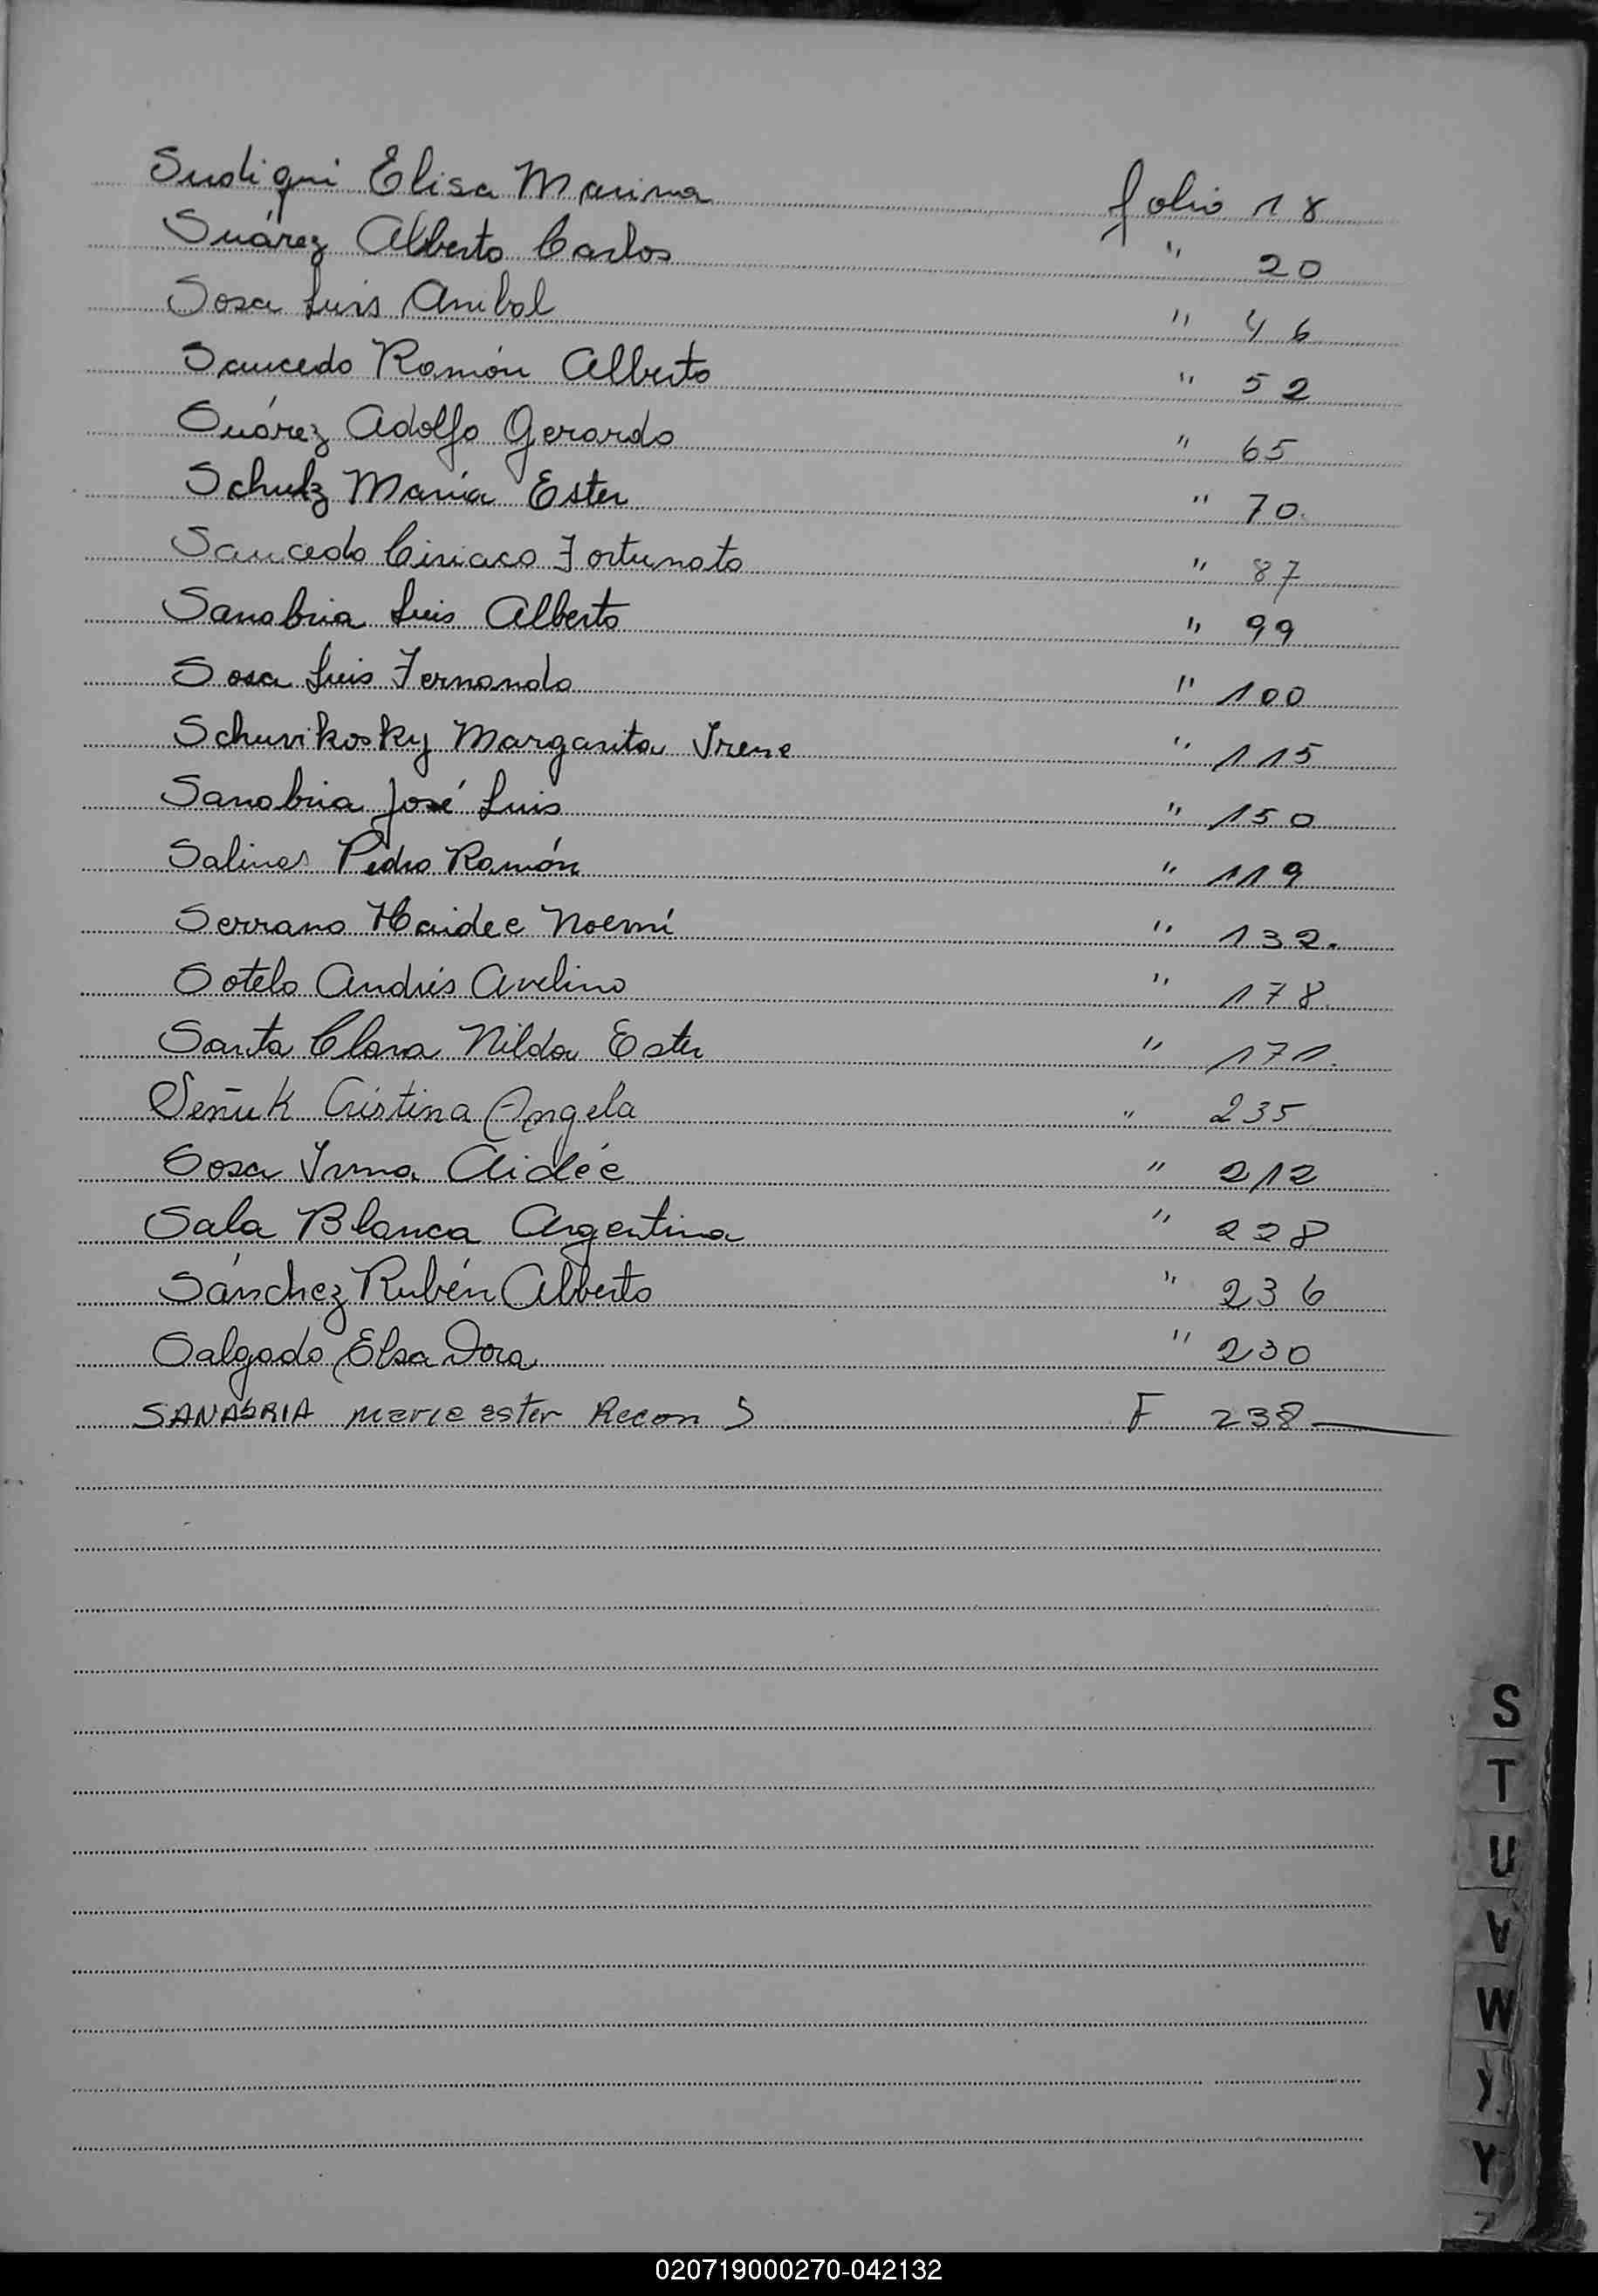 Sudiqui Elisa Marina folio 18
Suárez Alberto Carlos " 20
Sosa Luis Anibal " 46
Saucedo Ramón Alberto " 52
Suárez Adolfo Gerardo " 65
Schulz María Ester " 70.
Saucedo Ciriaco Fortunato " 87
Sanabria Luis Alberto " 99
Sosa Luis Fernando " 100
Schuvikosky Margarita Irene " 115
Sanabria José Luis " 150
Salinas Pedro Ramón " 119
Serrano Haidee Noemí " 132.
Sotelo Andrés Avelino " 178.
Santa Clara Nilda Ester " 171.
Señuk Cristina Angela " 235
Sosa Irma Aidée " 212
Sala Blanca Argentina " 228
Sánchez Rubén Alberto " 236
Salgado Elsa Dora " 230
SANABRIA maria ester Recon S F 238
S
T
U
V
W
Y
Z
020719000270-042132